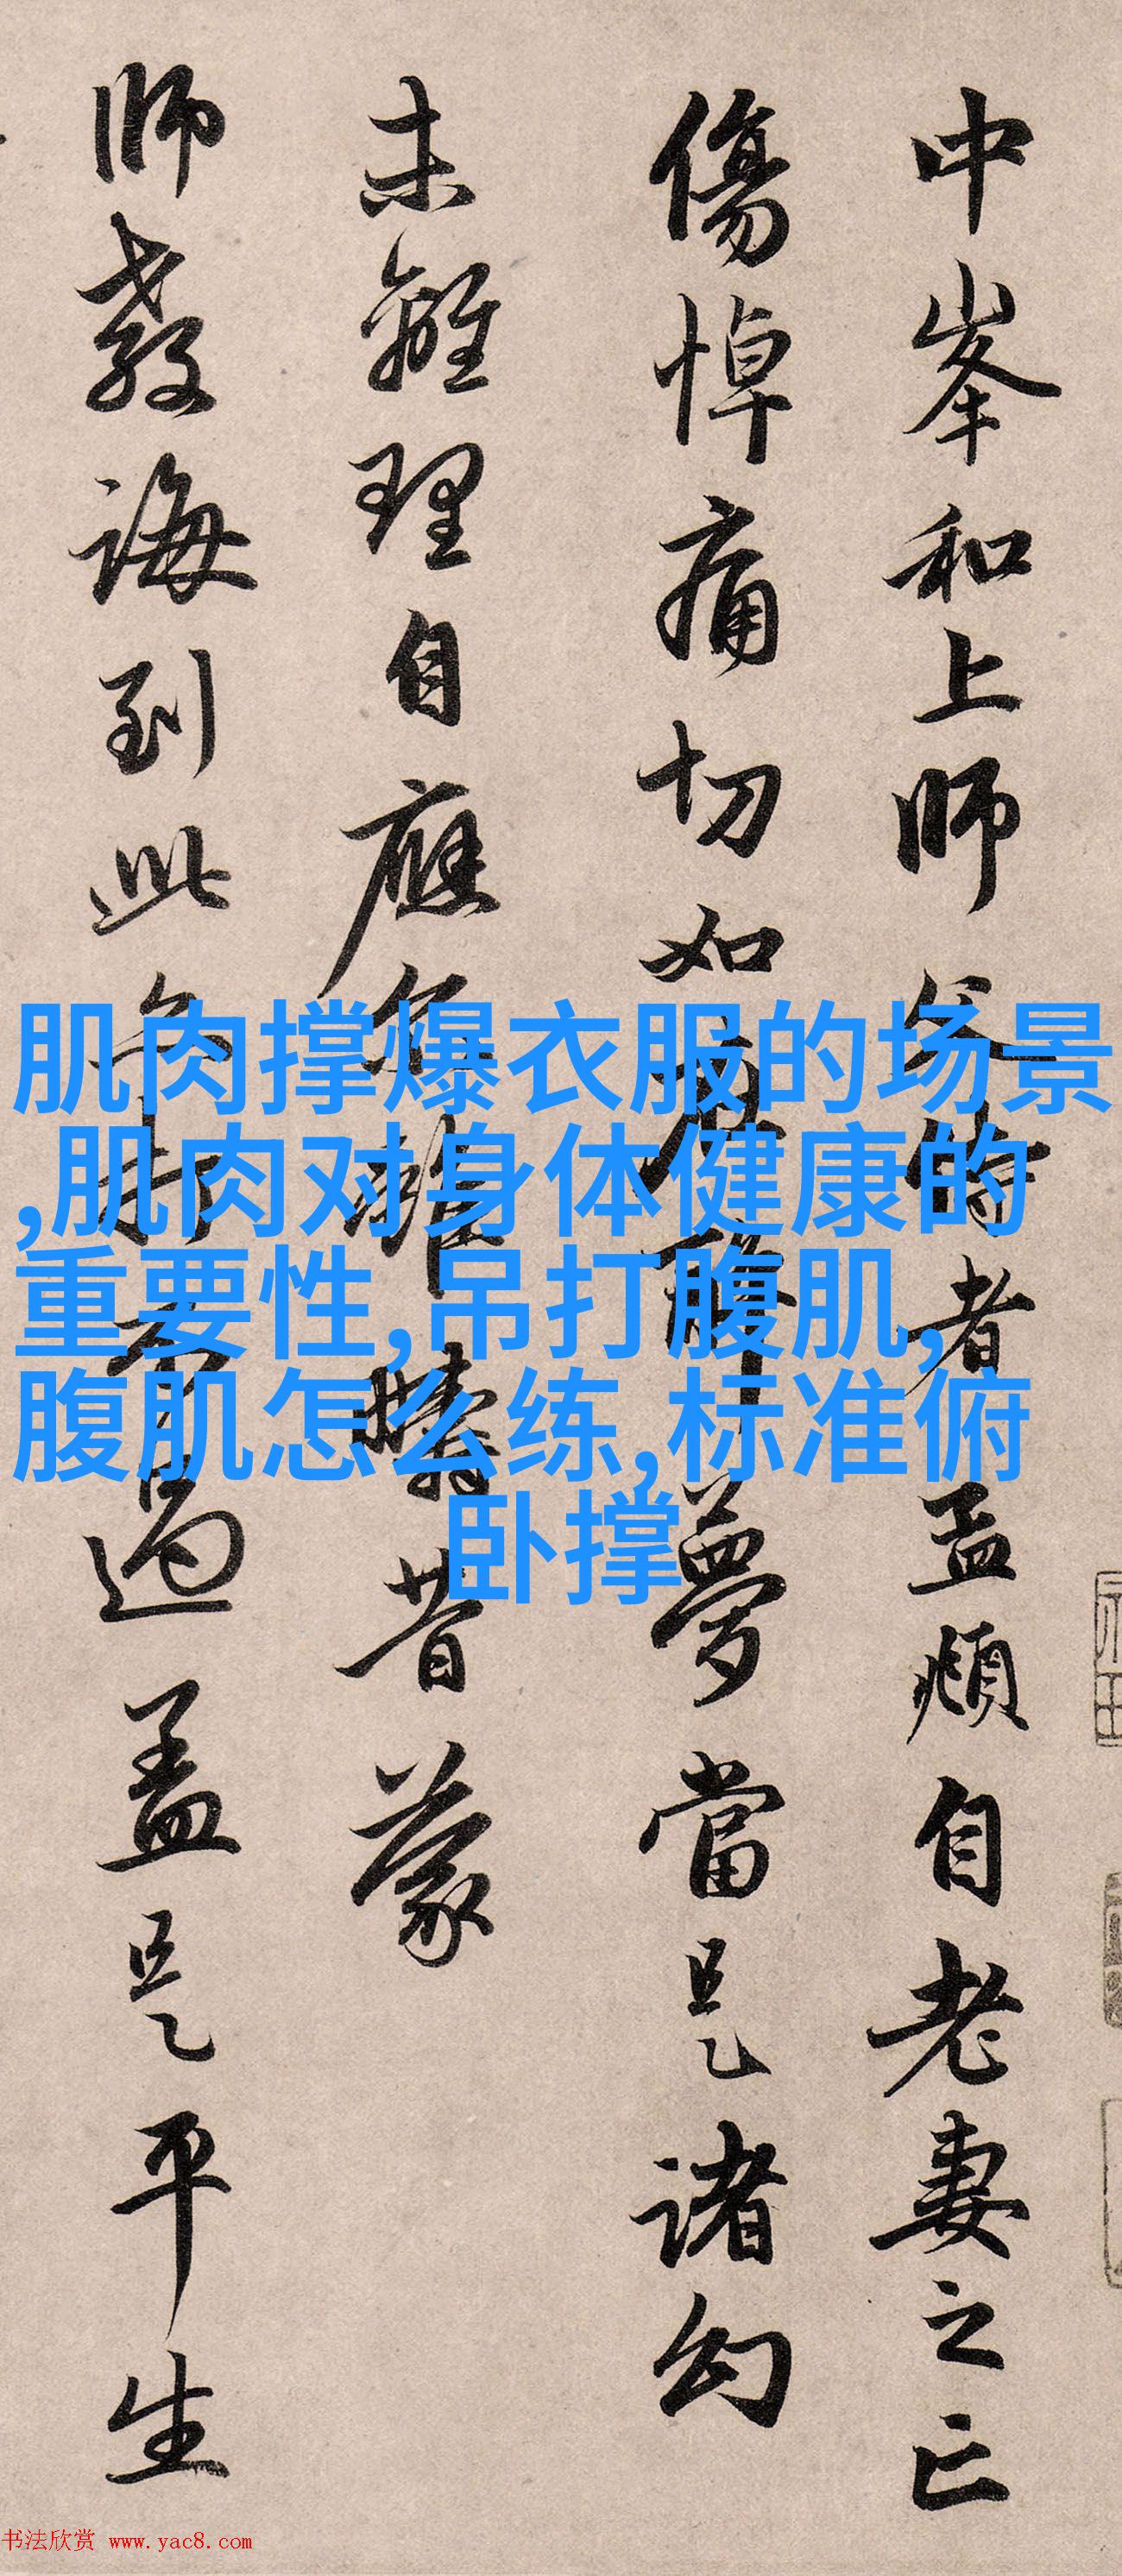 中峯和上師父侍者孟頫自老妻之亡
傷悼痛切如在醉夢當是諸幻
未離理自應尔雖疇昔蒙
師教誨到此亦打不過蓋是平生
肌肉撑爆衣服的场景
,肌肉对身体健康的
重要性,吊打腹肌,
腹肌怎么练,标准俯
卧撑
书法欣赏 www.yac8.com